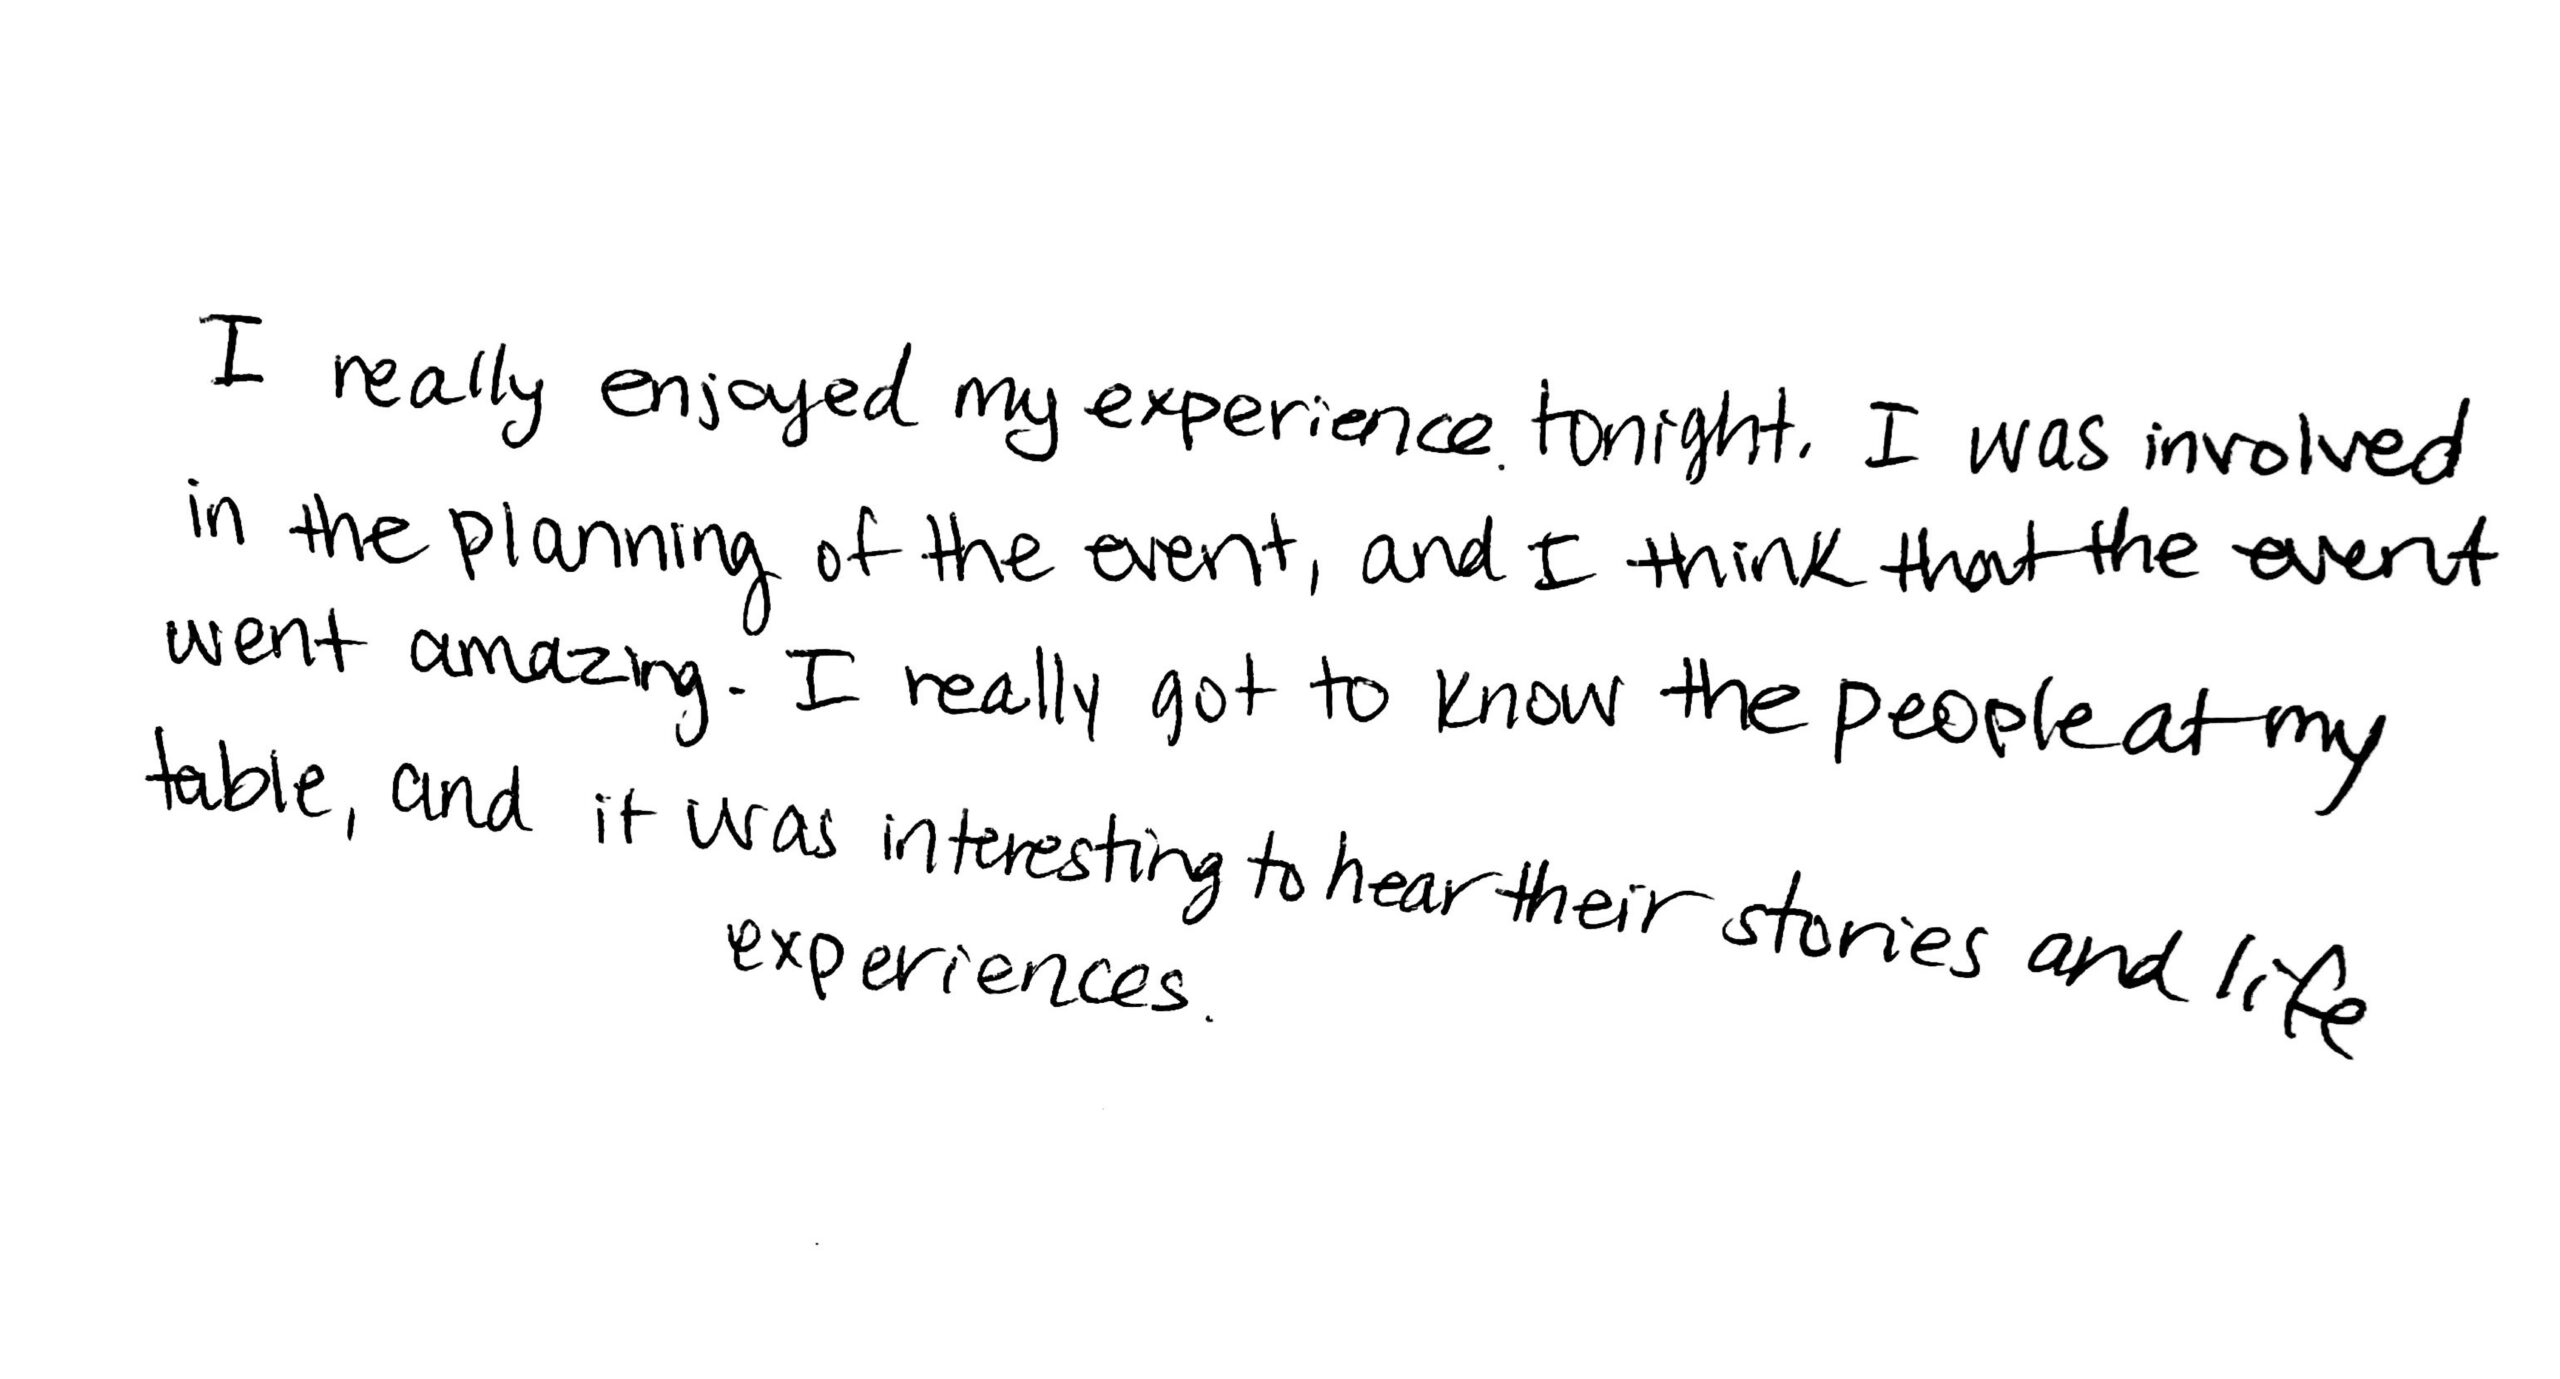 I really enjoyed my experience. tonight. I was involved
in the planning of the event, and I think that the event
went amazing. I really got to know the people at my
table, and it was interesting to hear their stories and life
experiences.